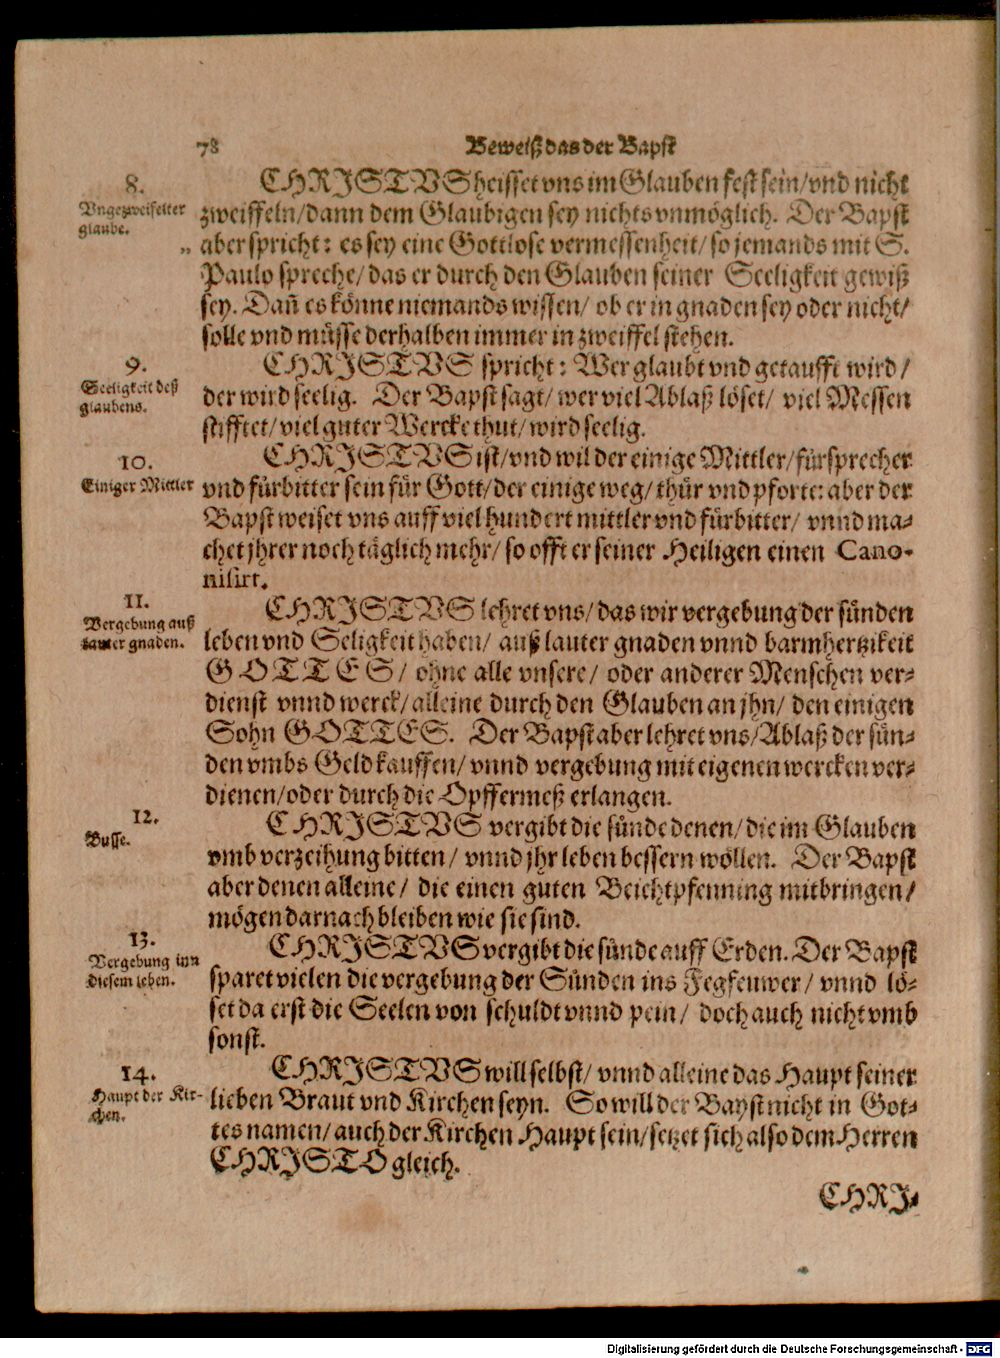 78 Beweiß das der Bapst
8.
Vngezweifelter
glaube.
CHRISTVS heisset vns im Glauben fest sein/vnd nicht
zweiffeln/dann dem Glaubigen sey nichts vnmöglich. Der Bapst
„ aber spricht: es sey eine Gottlose vermessenheit/so jemands mit S.
Paulo spreche/das er durch den Glauben seiner Seeligkeit gewiß
sey. Dañ es könne niemands wissen/ ob er in gnaden sey oder nicht/
solle vnd müsse derhalben immer in zweiffel stehen.
9.
Seeligkeit deß
glaubens.
CHRISTVS spricht: Wer glaubt vnd getaufft wird/
der wird seelig. Der Bapst sagt/ wer viel Ablaß löset/ viel Messen
stifftet/viel guter Wercke thut/wird seelig.
10.
Einiger Mittler
CHRISTVS ist/vnd wil der einige Mittler/fürsprecher
vnd fürbitter sein für Gott/der einige weg/ thür vnd pforte: aber der
Bapst weiset vns auff viel hundert mittler vnd fürbitter/ vnnd ma-
chet jhrer noch täglich mehr/ so offt er seiner Heiligen einen Cano-
nisirt.
11.
Vergebung auß
lauter gnaden.
CHRISTVS lehret vns/das wir vergebung der sünden
leben vnd Seligkeit haben/ auß lauter gnaden vnnd barmhertzikeit
GOTTES/ ohne alle vnsere/ oder anderer Menschen ver-
dienst vnnd werck/alleine durch den Glauben an jhn/ den einigen
Sohn GOTTES. Der Bapst aber lehret vns/Ablaß der sün-
den vmbs Geld kauffen/ vnnd vergebung mit eigenen wercken ver-
dienen/oder durch die Opffermeß erlangen.
12.
Busse.
CHRISTVS vergibt die sünde denen/die im Glauben
vmb verzeihung bitten/ vnnd jhr leben bessern wöllen. Der Bapst
aber denen alleine/ die einen guten Beichtpfenning mitbringen/
mögen darnach bleiben wie sie sind.
13.
Vergebung inn
diesem leben.
CHRISTVS vergibt die sünde auff Erden. Der Bapst
sparet vielen die vergebung der Sünden ins Fegfeuwer/ vnnd lö-
set da erst die Seelen von schuldt vnnd pein/ doch auch nicht vmb
sonst.
14.
Haupt der Kir-
chen.
CHRISTVS will selbst/ vnnd alleine das Haupt seiner
lieben Braut vnd Kirchen seyn. So will der Bapst nicht in Got-
tes namen/auch der Kirchen Haupt sein/setzet sich also dem Herren
CHRISTO gleich.
CHRI-
Digitalisierung gefördert durch die Deutsche Forschungsgemeinschaft - DFG